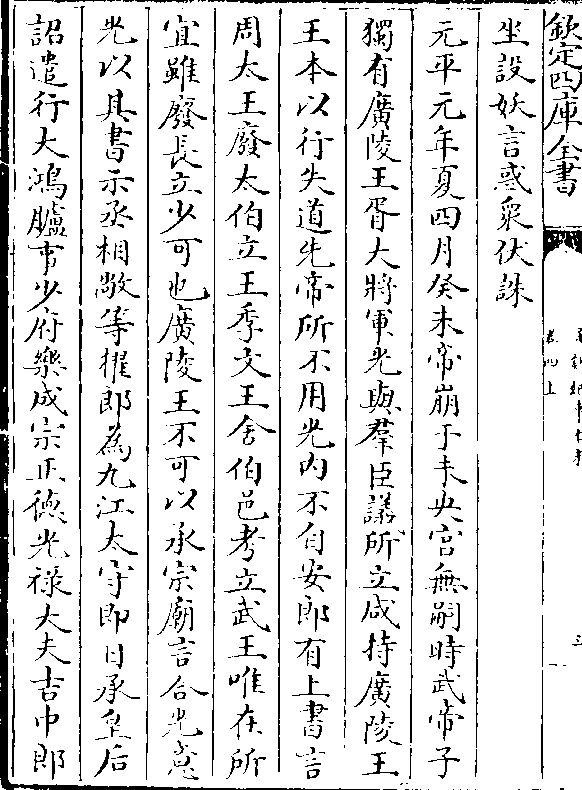 欽定四庫全書
卷四上
坐設妖言惑衆伏誅
元平元年夏四月癸未帝崩于未央宮無嗣時武帝子
獨有廣陵王胥大將軍光與羣臣議所立咸持廣陵王
王本以行失道先帝所不用光内不自安郎有上書言
周太王廢太伯立王季文王舍伯邑考立武王唯在所
宜雖廢長立少可也廣陵王不可以承宗廟言合光意
光以其書示丞相敞等擢郎為九江太守即日承皇后
詔遣行大鴻臚事少府樂成宗正德光禄大夫吉中郎